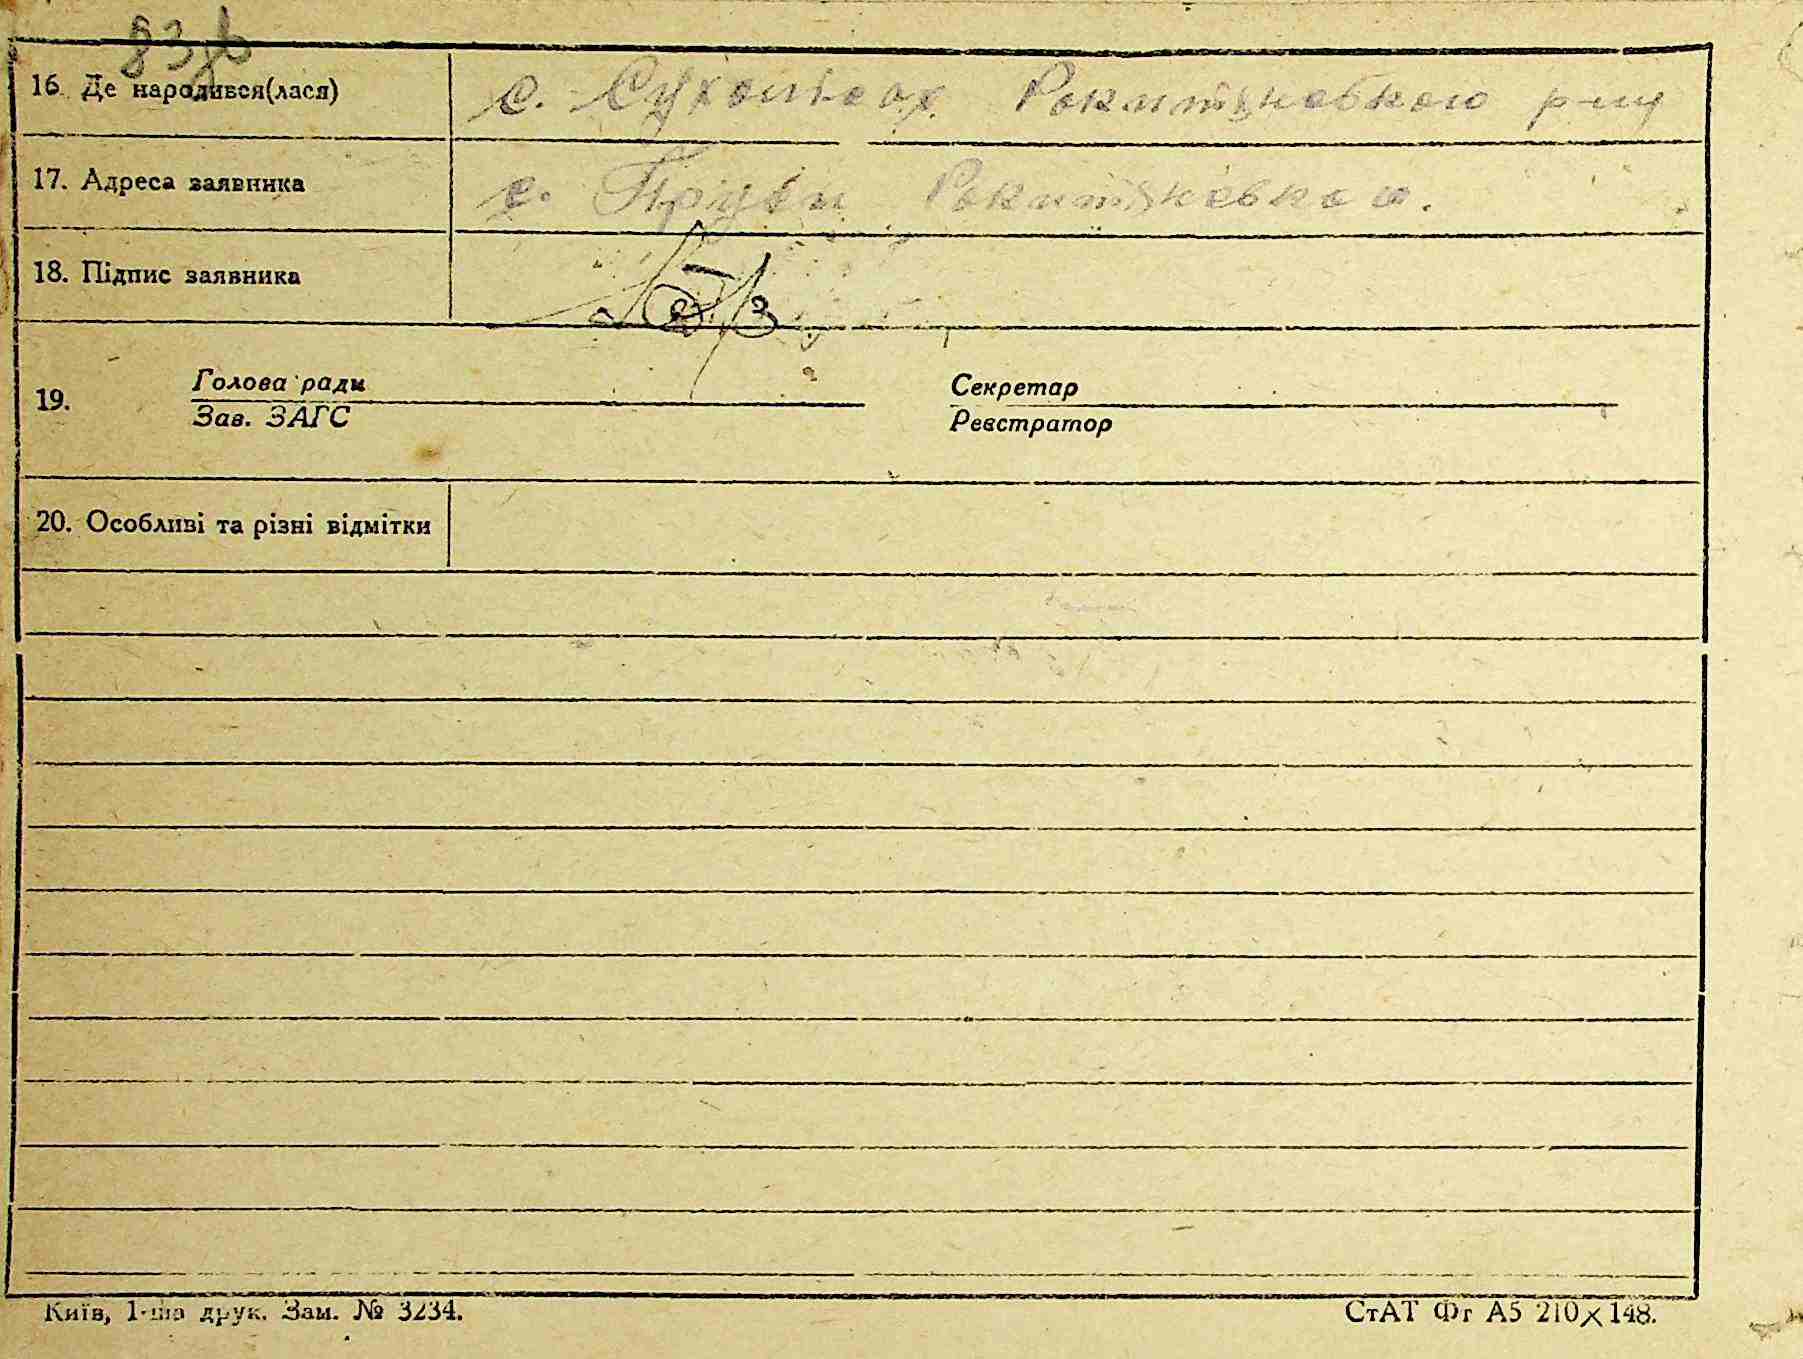 83зв
16. Де народився(лася) с. Сухолісах Рокитнянського р-ну
17. Адреса заявника с. Пруси Рокитнянського.
18. Підпис заявника
19. Голова ради
Зав. ЗАГС
Секретар
Реєстратор
20. Особливі та різні відмітки
Київ, 1-ша друк. Зам. № 3234.
СтАТ Фг А5 210×148.